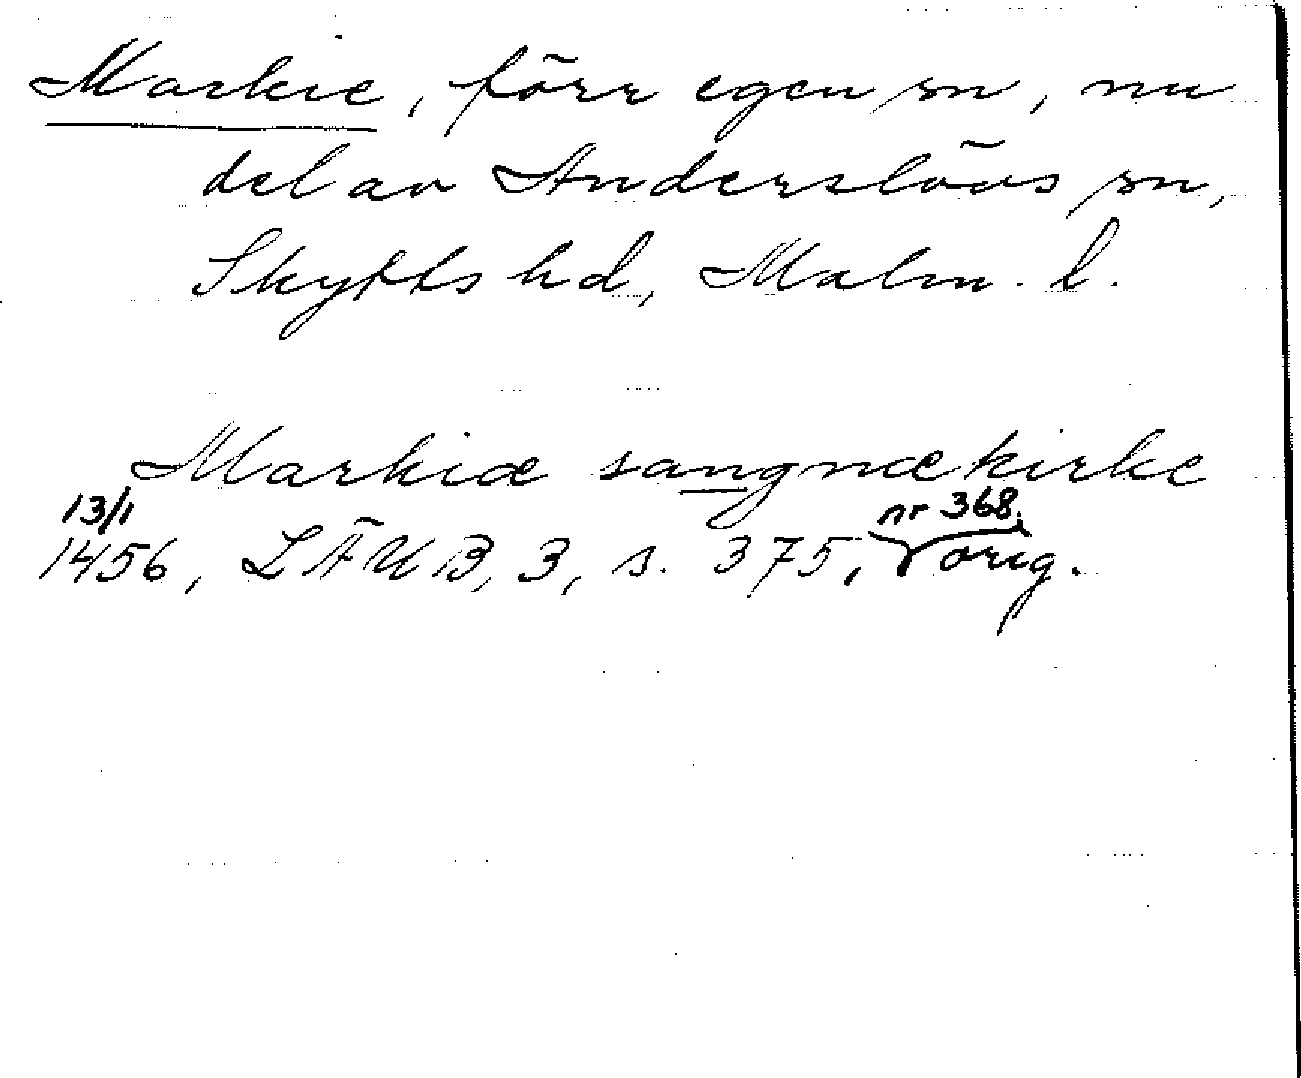 Markie, förr egen sn, nu
del av Anderslövs sn,
Skytts hd, Malm. l.
Markiæ sangnækirke
13/1 nr 368.
1456, LÄUB, 3, s. 375, orig.